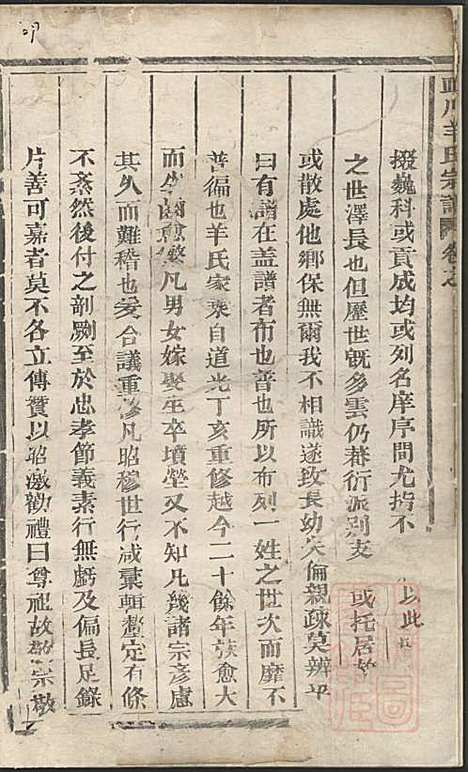 川羊氏宗譜 卷之
掇巍科或貢成均或列名庠序間尤指不 以此
之世澤長也但歷世既多雲仍蕃衍派別支 或托居
或散處他鄉保無爾我不相識遂致長幼失倫親疎莫辨乎
曰有譜在盖譜者布也普也所以布列一姓之世次而靡不
普徧也羊氏家乘自道光丁亥重修越今二十餘年族愈大
而生齒愈繁凡男女嫁娶生卒墳塋又不知凡幾諸宗彥慮
其久而難稽也爰合議重修凡昭穆世行咸彙輯釐定有條
不紊然後付之剞劂至於忠孝節義素行無虧及偏長足錄
片善可嘉者莫不各立傳贊以昭激勸禮曰尊祖故敬宗敬